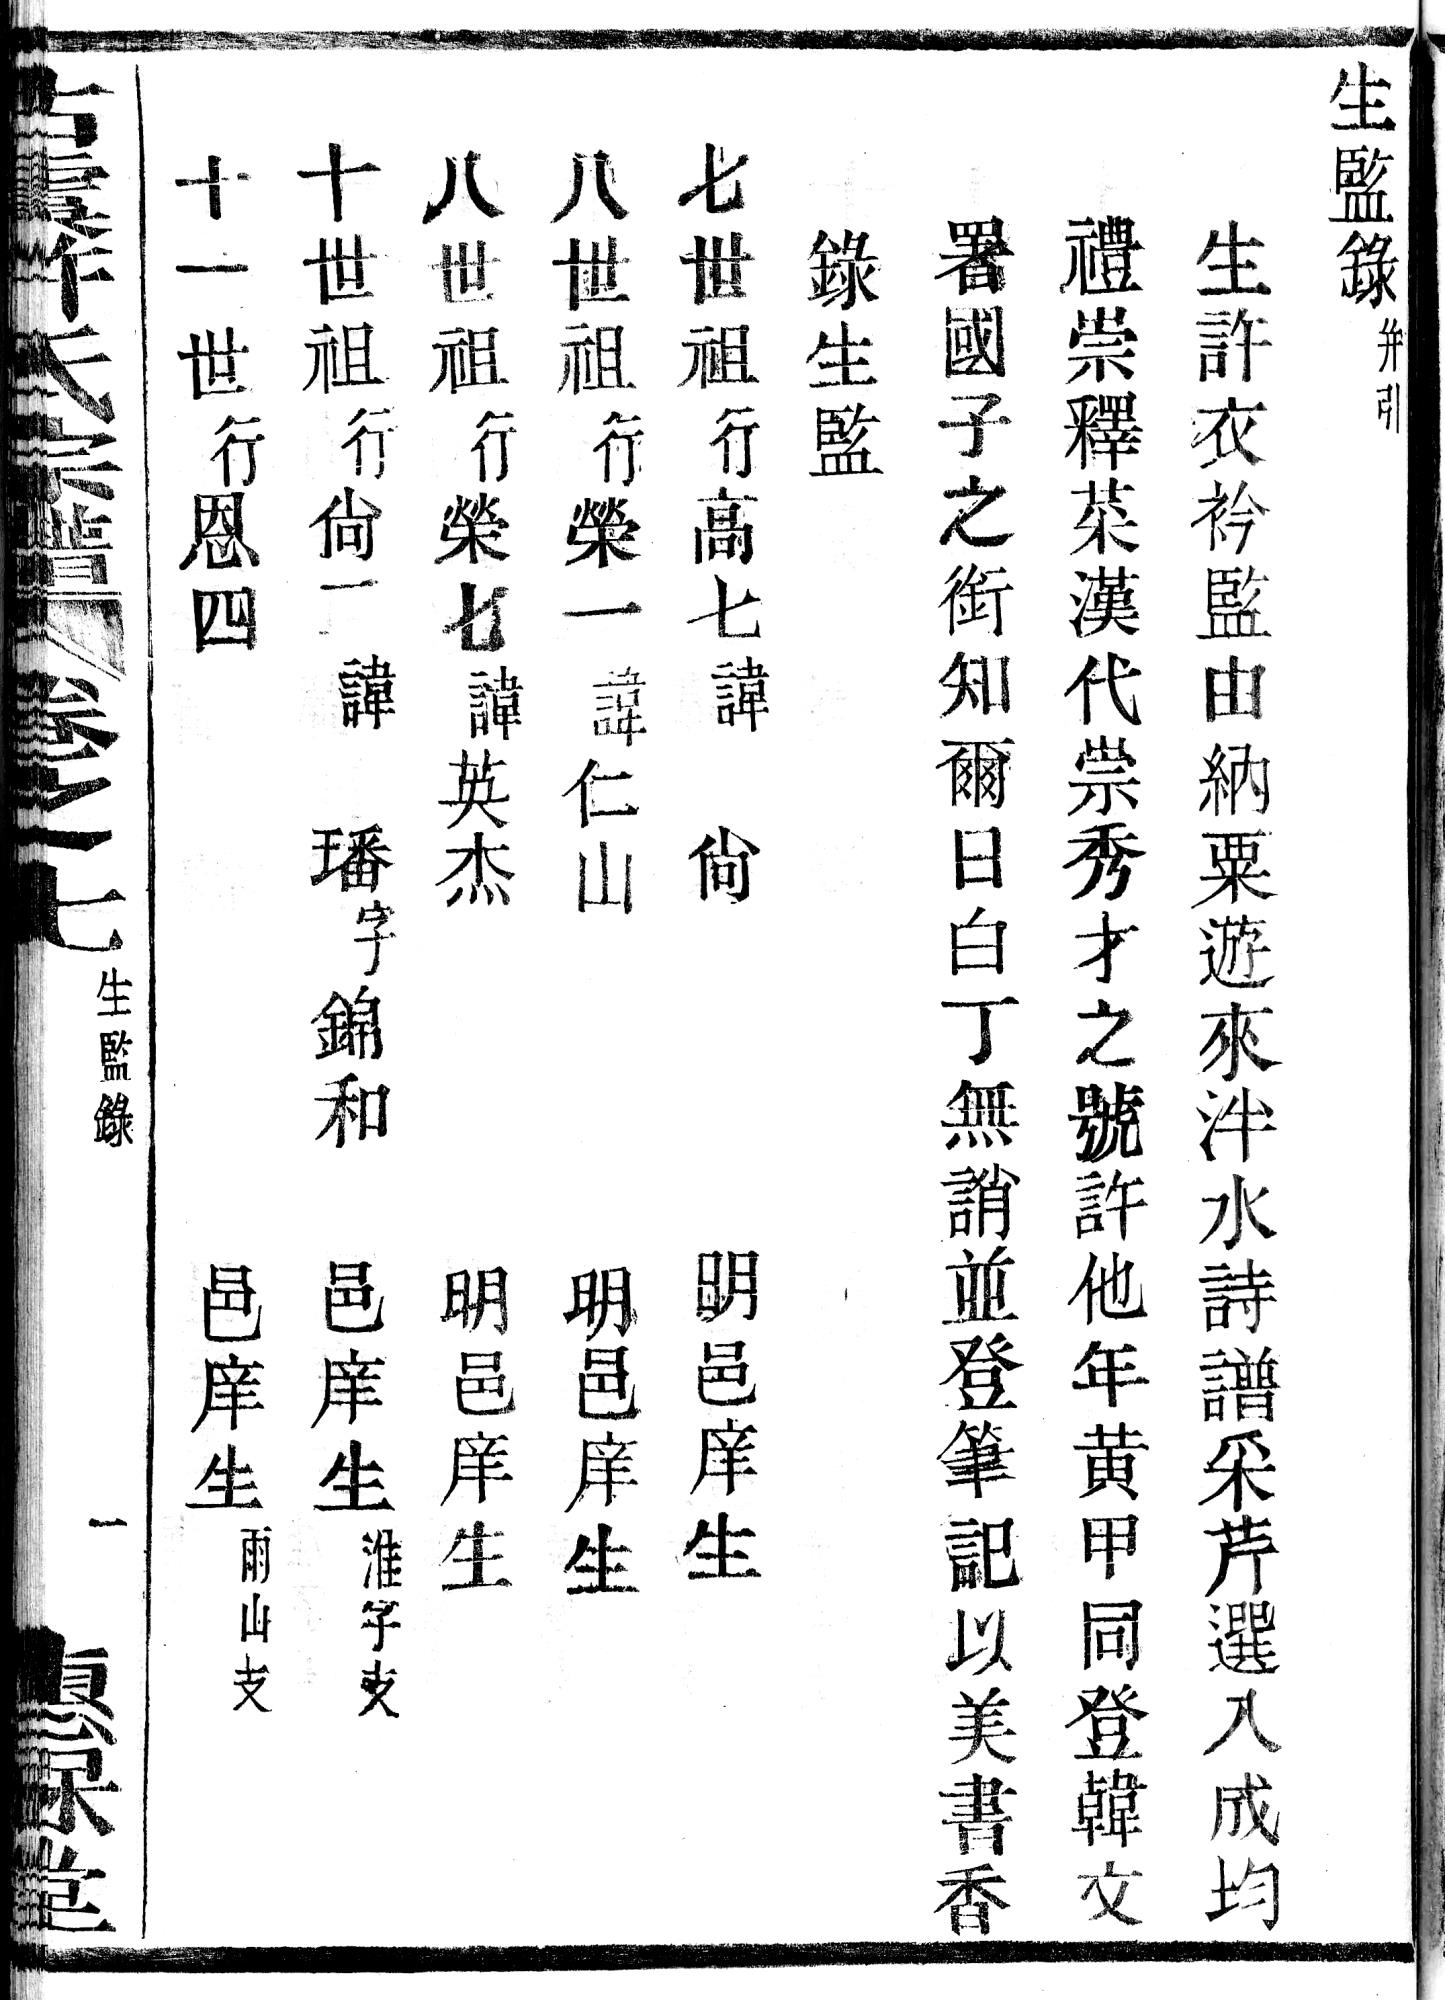 生監錄 并引
生許衣衿監由納粟遊來泮水詩譜采芹選入成均
禮崇釋菜漢代崇秀才之號許他年黃甲同登韓文
署國子之銜知爾日白丁無誚並登筆記以美書香
錄生監
七世祖行高七諱 尙 明邑庠生
八世祖行榮一諱仁山 明邑庠生
八世祖行榮七諱英杰 明邑庠生
十世祖行尙一諱 璠字錦和 邑庠生 淮字支
十一世行恩四 邑庠生 雨山支
氏宗譜 卷之七 生監錄 一 堂